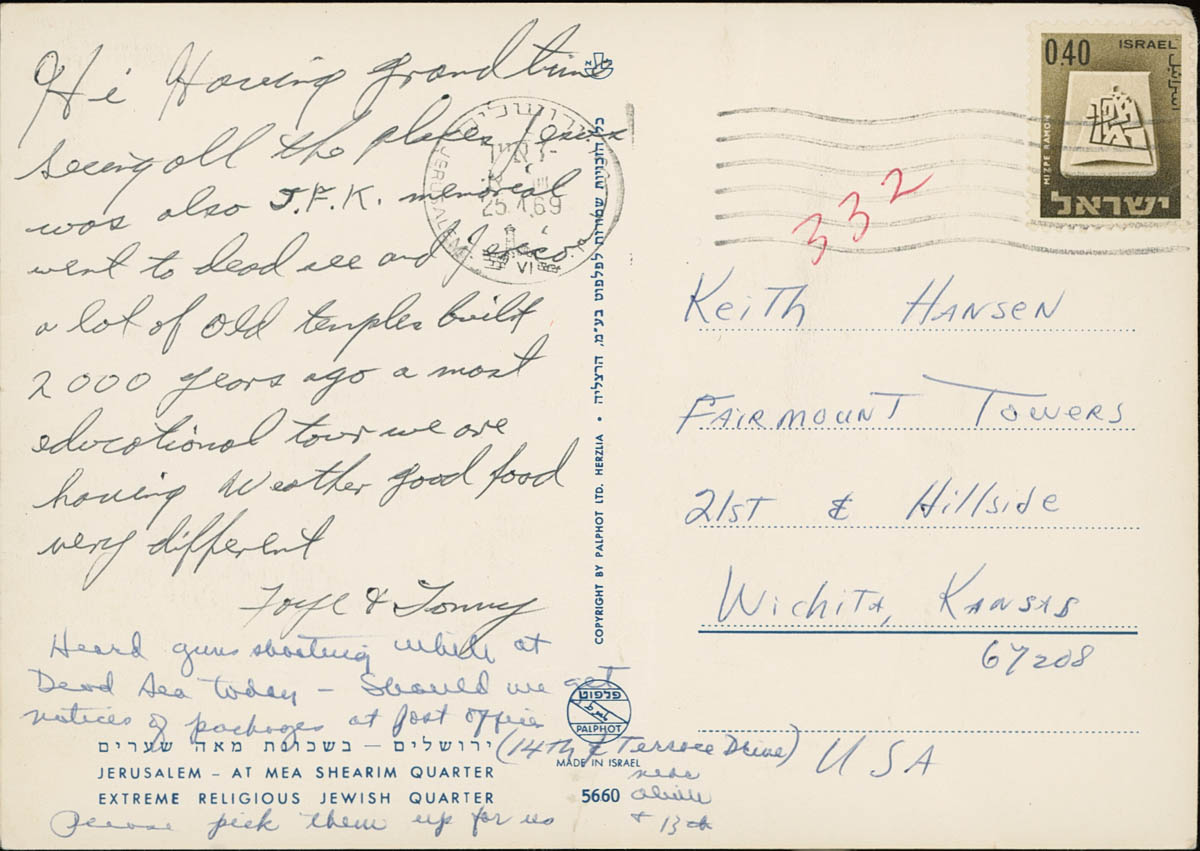 Hi Having grand time
seeing all the places Jesus
was also J.F.K. memorial
went to dead see and Jerico.
a lot of old temples built
2000 years ago a most
educational tour we are
having Weather good food
very different
Faye & Tommy
Heard guns shooting while at
Dead Sea today - Should we get
notices of packages at Post Office
(14th & Terrace Drive)
near
& 13th
Please pick them up for us
ירושלים – בשכונת מאה שערים
JERUSALEM - AT MEA SHEARIM QUARTER
EXTREME RELIGIOUS JEWISH QUARTER
כל הזכויות שמורות לפלפוט בע"מ, הרצליה • COPYRIGHT BY PALPHOT LTD. HERZLIA
פלפוט
PALPHOT
MADE IN ISRAEL
5660
ירושלים
JERUSALEM
25.4.69
VI
0.40 ISRAEL
اسرائيل
MIZPE RAMON
ישראל
332
Keith HANSEN
FAIRMOUNT TOWERS
21ST & Hillside
Wichita, KANSAS
67208
USA